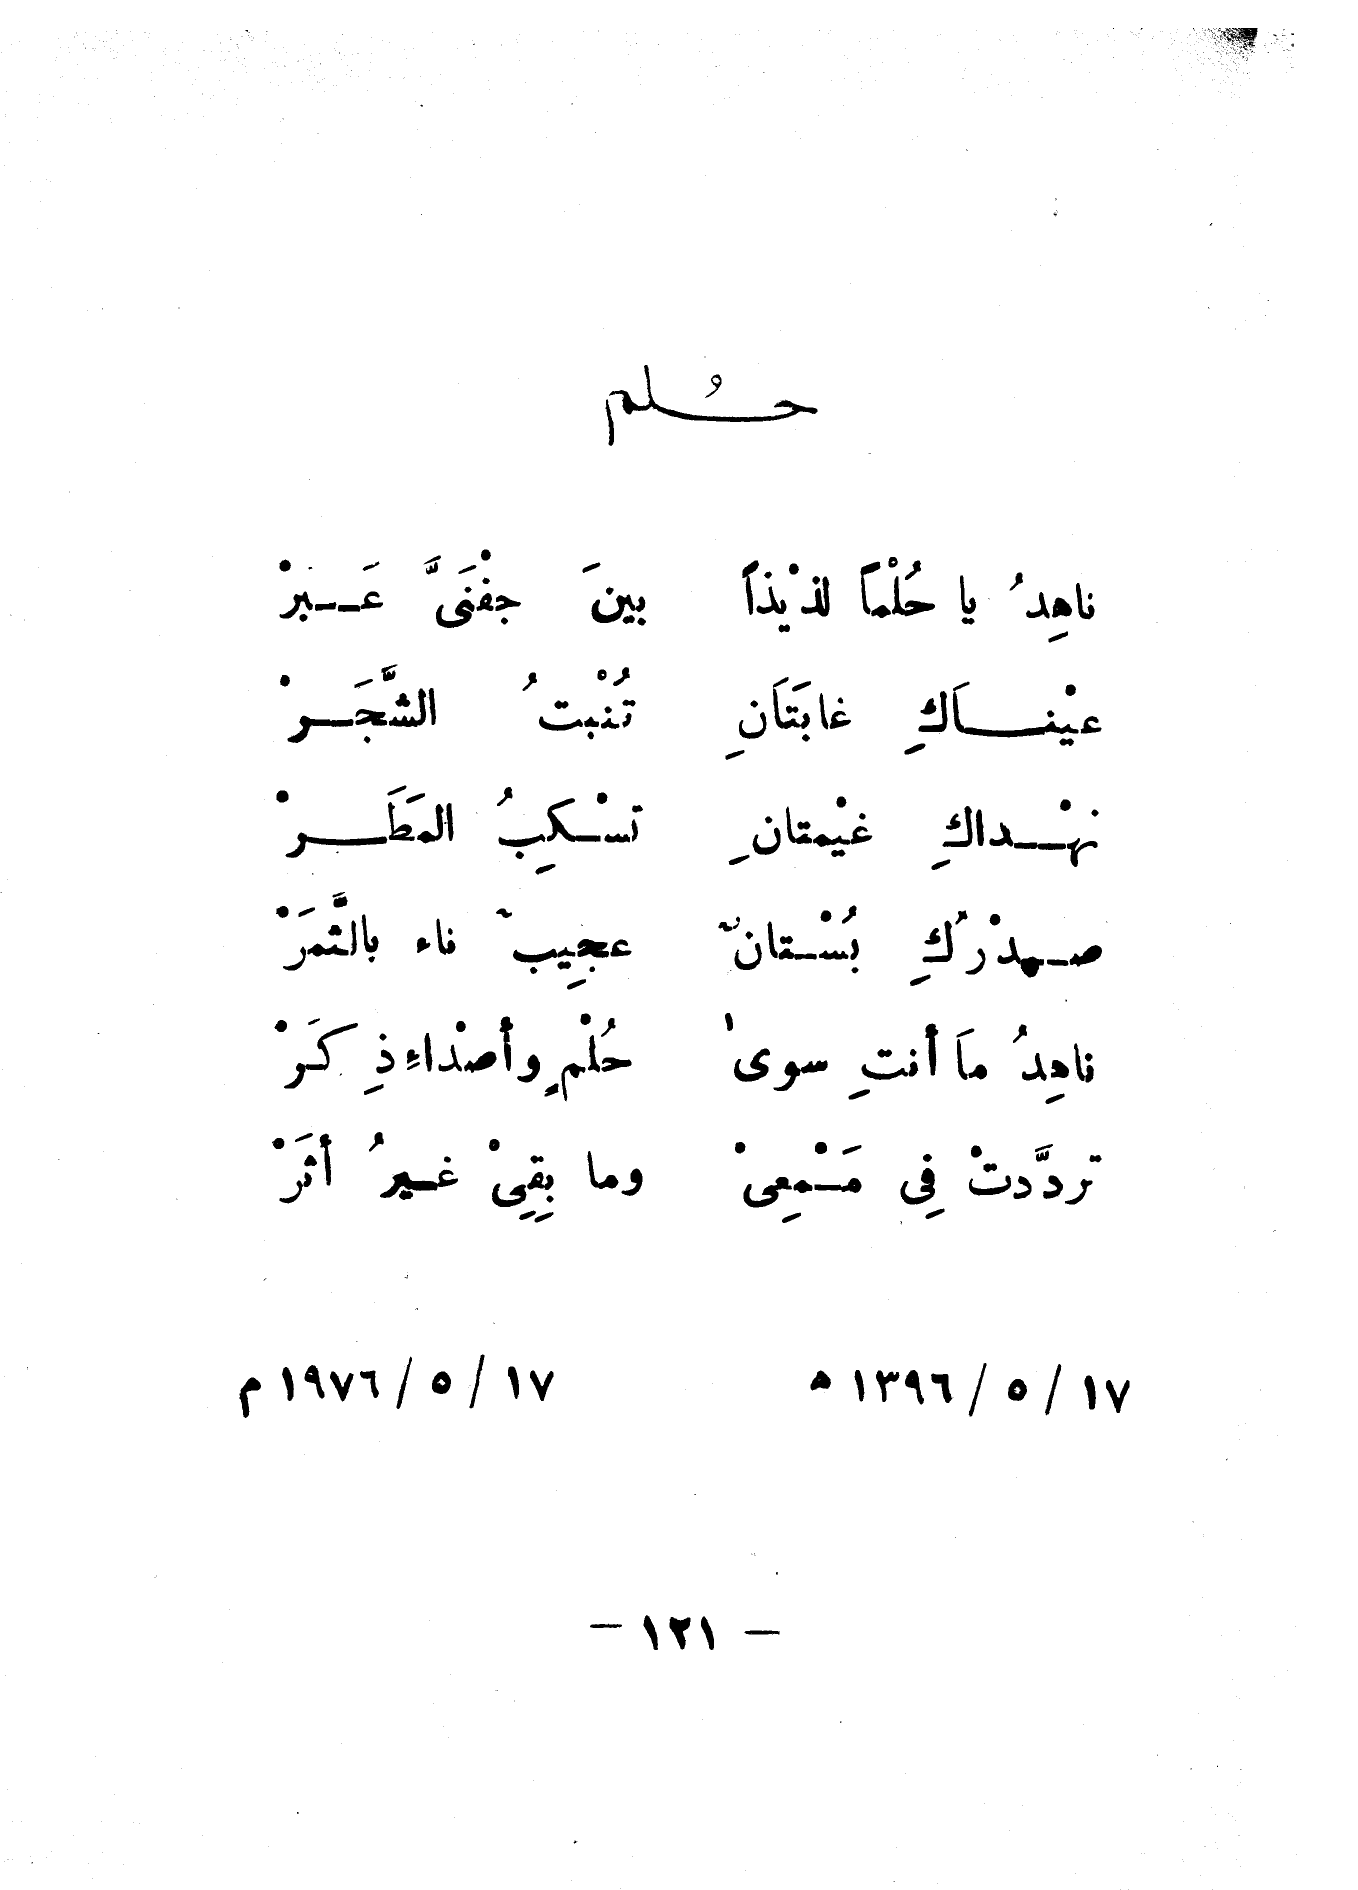 حُلم
ناهِدُ يا حُلْماً لذيْذاً بينَ جفْنَىَّ عَبرْ
عيْناَكِ غابَتَانِ تُنْبتُ الشَّجَرْ
نهْداكِ غيْمتانِ تسْكبُِ المَطَرْ
صدْرُكِ بُسْتانٌ عجِيبٌ ناء بالثَّمَرْ
ناهِدُ مَا أنتِ سوىٰ حُلْمٍ وأصْداءِ ذِكَرْ
تردَّدتْ فِي مَسْمعِىْ وما بِقِىْ غيرُ أثَرْ
١٧/ ٥ / ١٣٩٦ ه ١٧/ ٥ / ١٩٧٦ م
– ١٢١ –